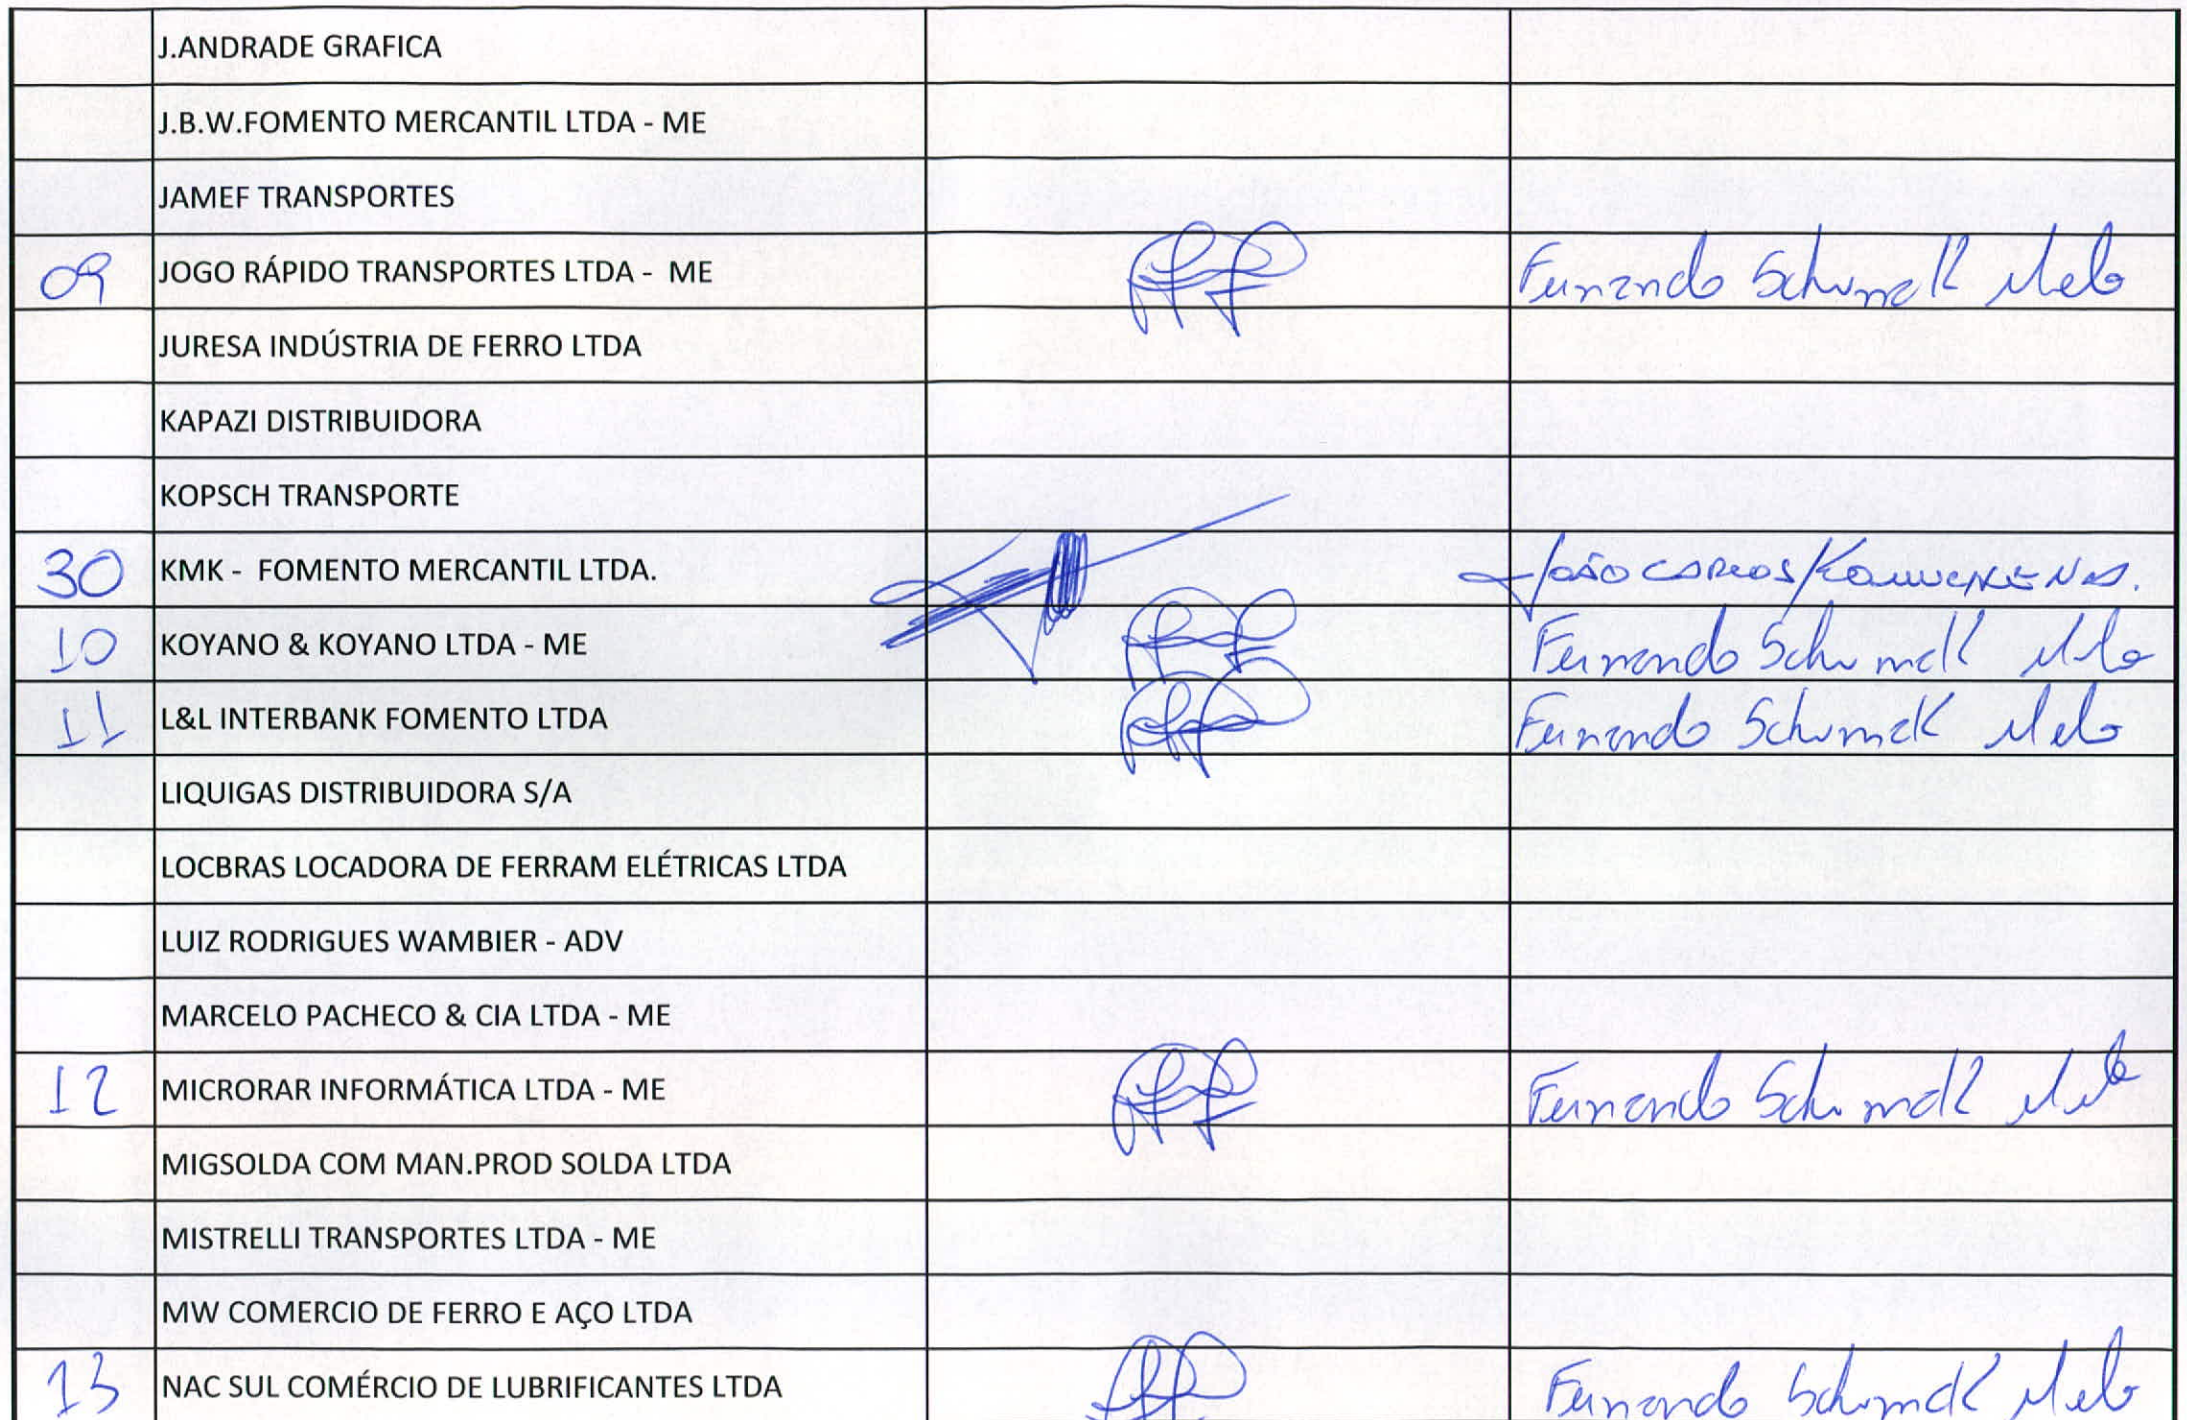 J.ANDRADE GRAFICA
J.B.W.FOMENTO MERCANTIL LTDA - ME
JAMEF TRANSPORTES
09 JOGO RÁPIDO TRANSPORTES LTDA - ME Fernando Schumack Melo
JURESA INDÚSTRIA DE FERRO LTDA
KAPAZI DISTRIBUIDORA
KOPSCH TRANSPORTE
30 KMK - FOMENTO MERCANTIL LTDA. JOÃO CARLOS
10 KOYANO & KOYANO LTDA - ME Fernando Schumack Melo
11 L&L INTERBANK FOMENTO LTDA Fernando Schumack Melo
LIQUIGAS DISTRIBUIDORA S/A
LOCBRAS LOCADORA DE FERRAM ELÉTRICAS LTDA
LUIZ RODRIGUES WAMBIER - ADV
MARCELO PACHECO & CIA LTDA - ME
12 MICRORAR INFORMÁTICA LTDA - ME Fernando Schumack Melo
MIGSOLDA COM MAN.PROD SOLDA LTDA
MISTRELLI TRANSPORTES LTDA - ME
MW COMERCIO DE FERRO E AÇO LTDA
13 NAC SUL COMÉRCIO DE LUBRIFICANTES LTDA Fernando Schumack Melo